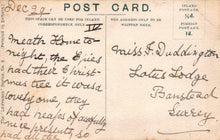 Dec 29
POST CARD.
THIS SPACE CAN BE USED FOR INLAND
CORRESPONDENCE ONLY
THE ADDRESS ONLY TO BE
WRITTEN HERE
INLAND
POSTAGE
½d.
FOREIGN
POSTAGE
1d.
IV
meath Home to-
night, the Girls
had their Christ-
mas tree it was d
everyone, they
had really
nice presents, so
Miss F. Duddington
Lotus Lodge
Banstead
Surrey